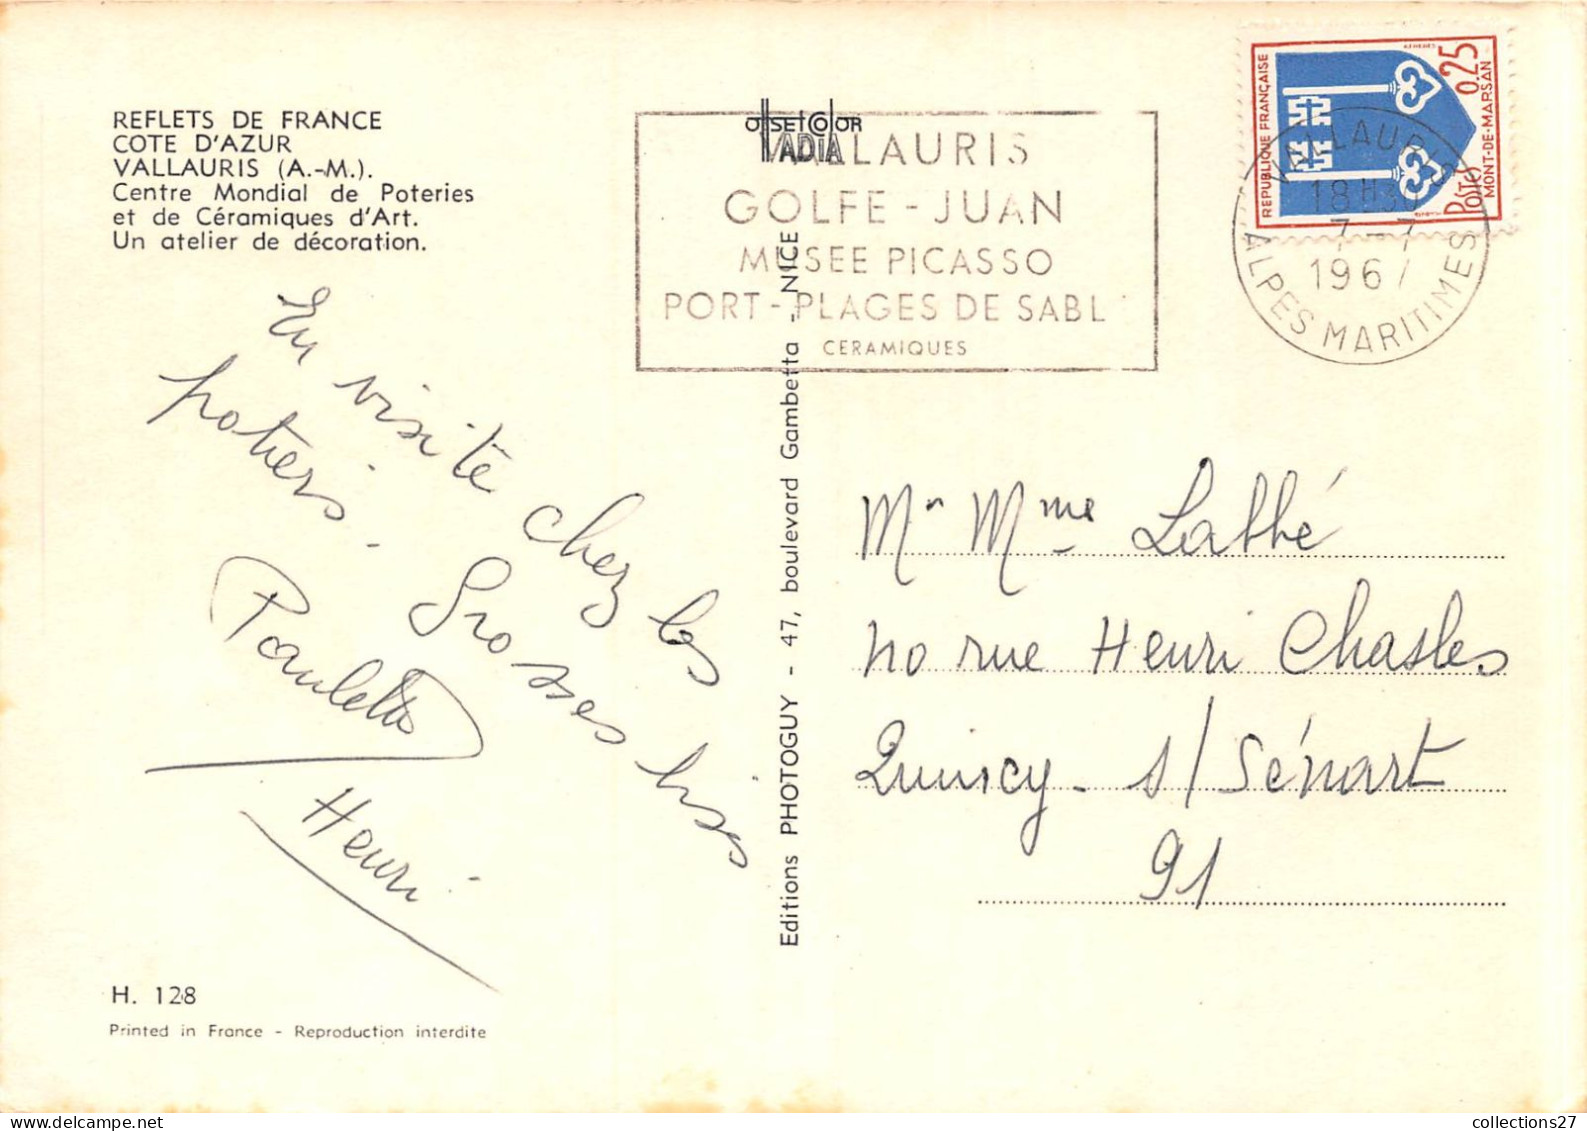 REFLETS DE FRANCE
COTE D'AZUR
VALLAURIS (A.-M.).
Centre Mondial de Poteries
et de Céramiques d'Art.
Un atelier de décoration.
En visite chez les
potiers. Grosses bises
Paulette
Henri
H. 128
Printed in France - Reproduction interdite
Editions PHOTOGUY - 47, boulevard Gambetta - NICE
OffseT COlOR
IADIA
VALLAURIS
GOLFE - JUAN
MUSEE PICASSO
PORT - PLAGES DE SABL
CERAMIQUES
REPUBLIQUE FRANÇAISE
0,25
POSTES
MONT-DE-MARSAN
VALLAURIS
18H30
7 - 7
1967
ALPES MARITIMES
Mr Mme Labbé
110 rue Henri Chasles
Quincy - s/ Sénart
91
collections27